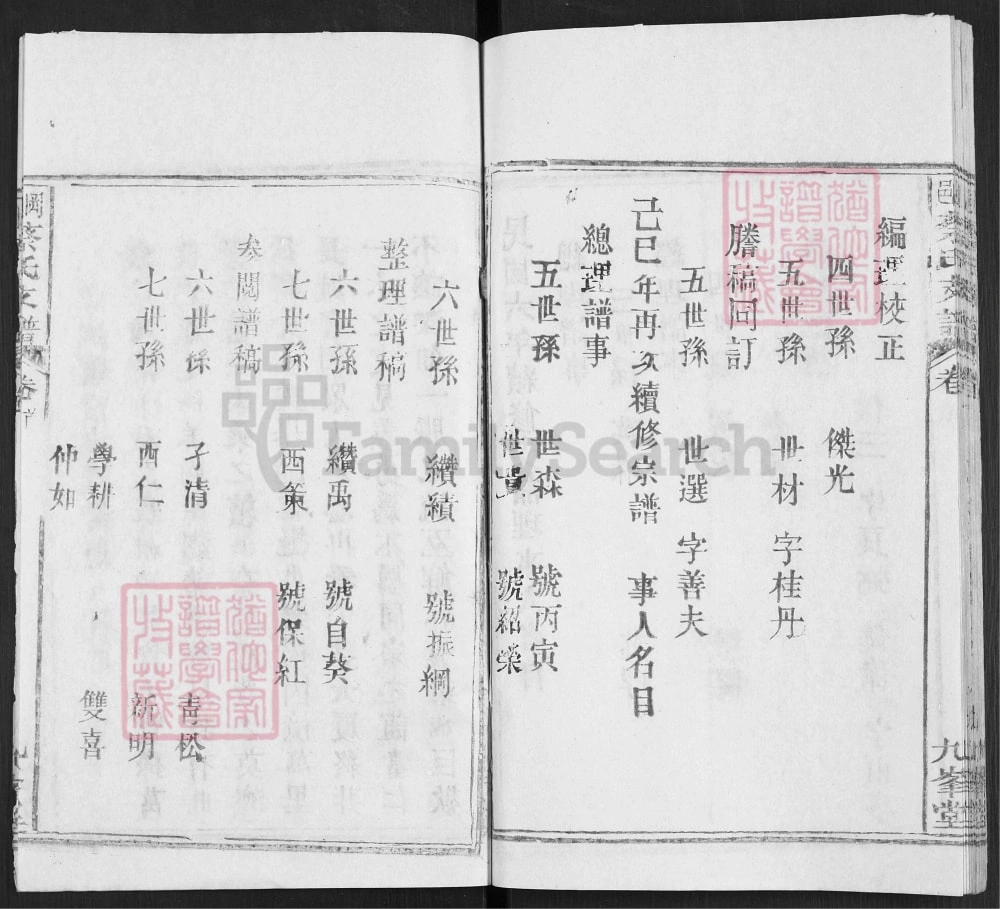 編理校正
四世孫 傑光
五世孫 世材 字桂丹
謄稿回訂
五世孫 世選 字善夫
己巳年再次續修宗譜 事人名目
總理譜事
五世孫 世森 號丙寅
世貴 號紹榮
九峯堂
六世孫 纘績 號振綱
整理譜稿
六世孫 纘禹 號自葵
七世孫 西策 號保紅
叅閱譜稿
六世孫 子清 青松
七世孫 西仁 新明
學耕 雙喜
仲如
氏支譜 卷首
FamilySearch